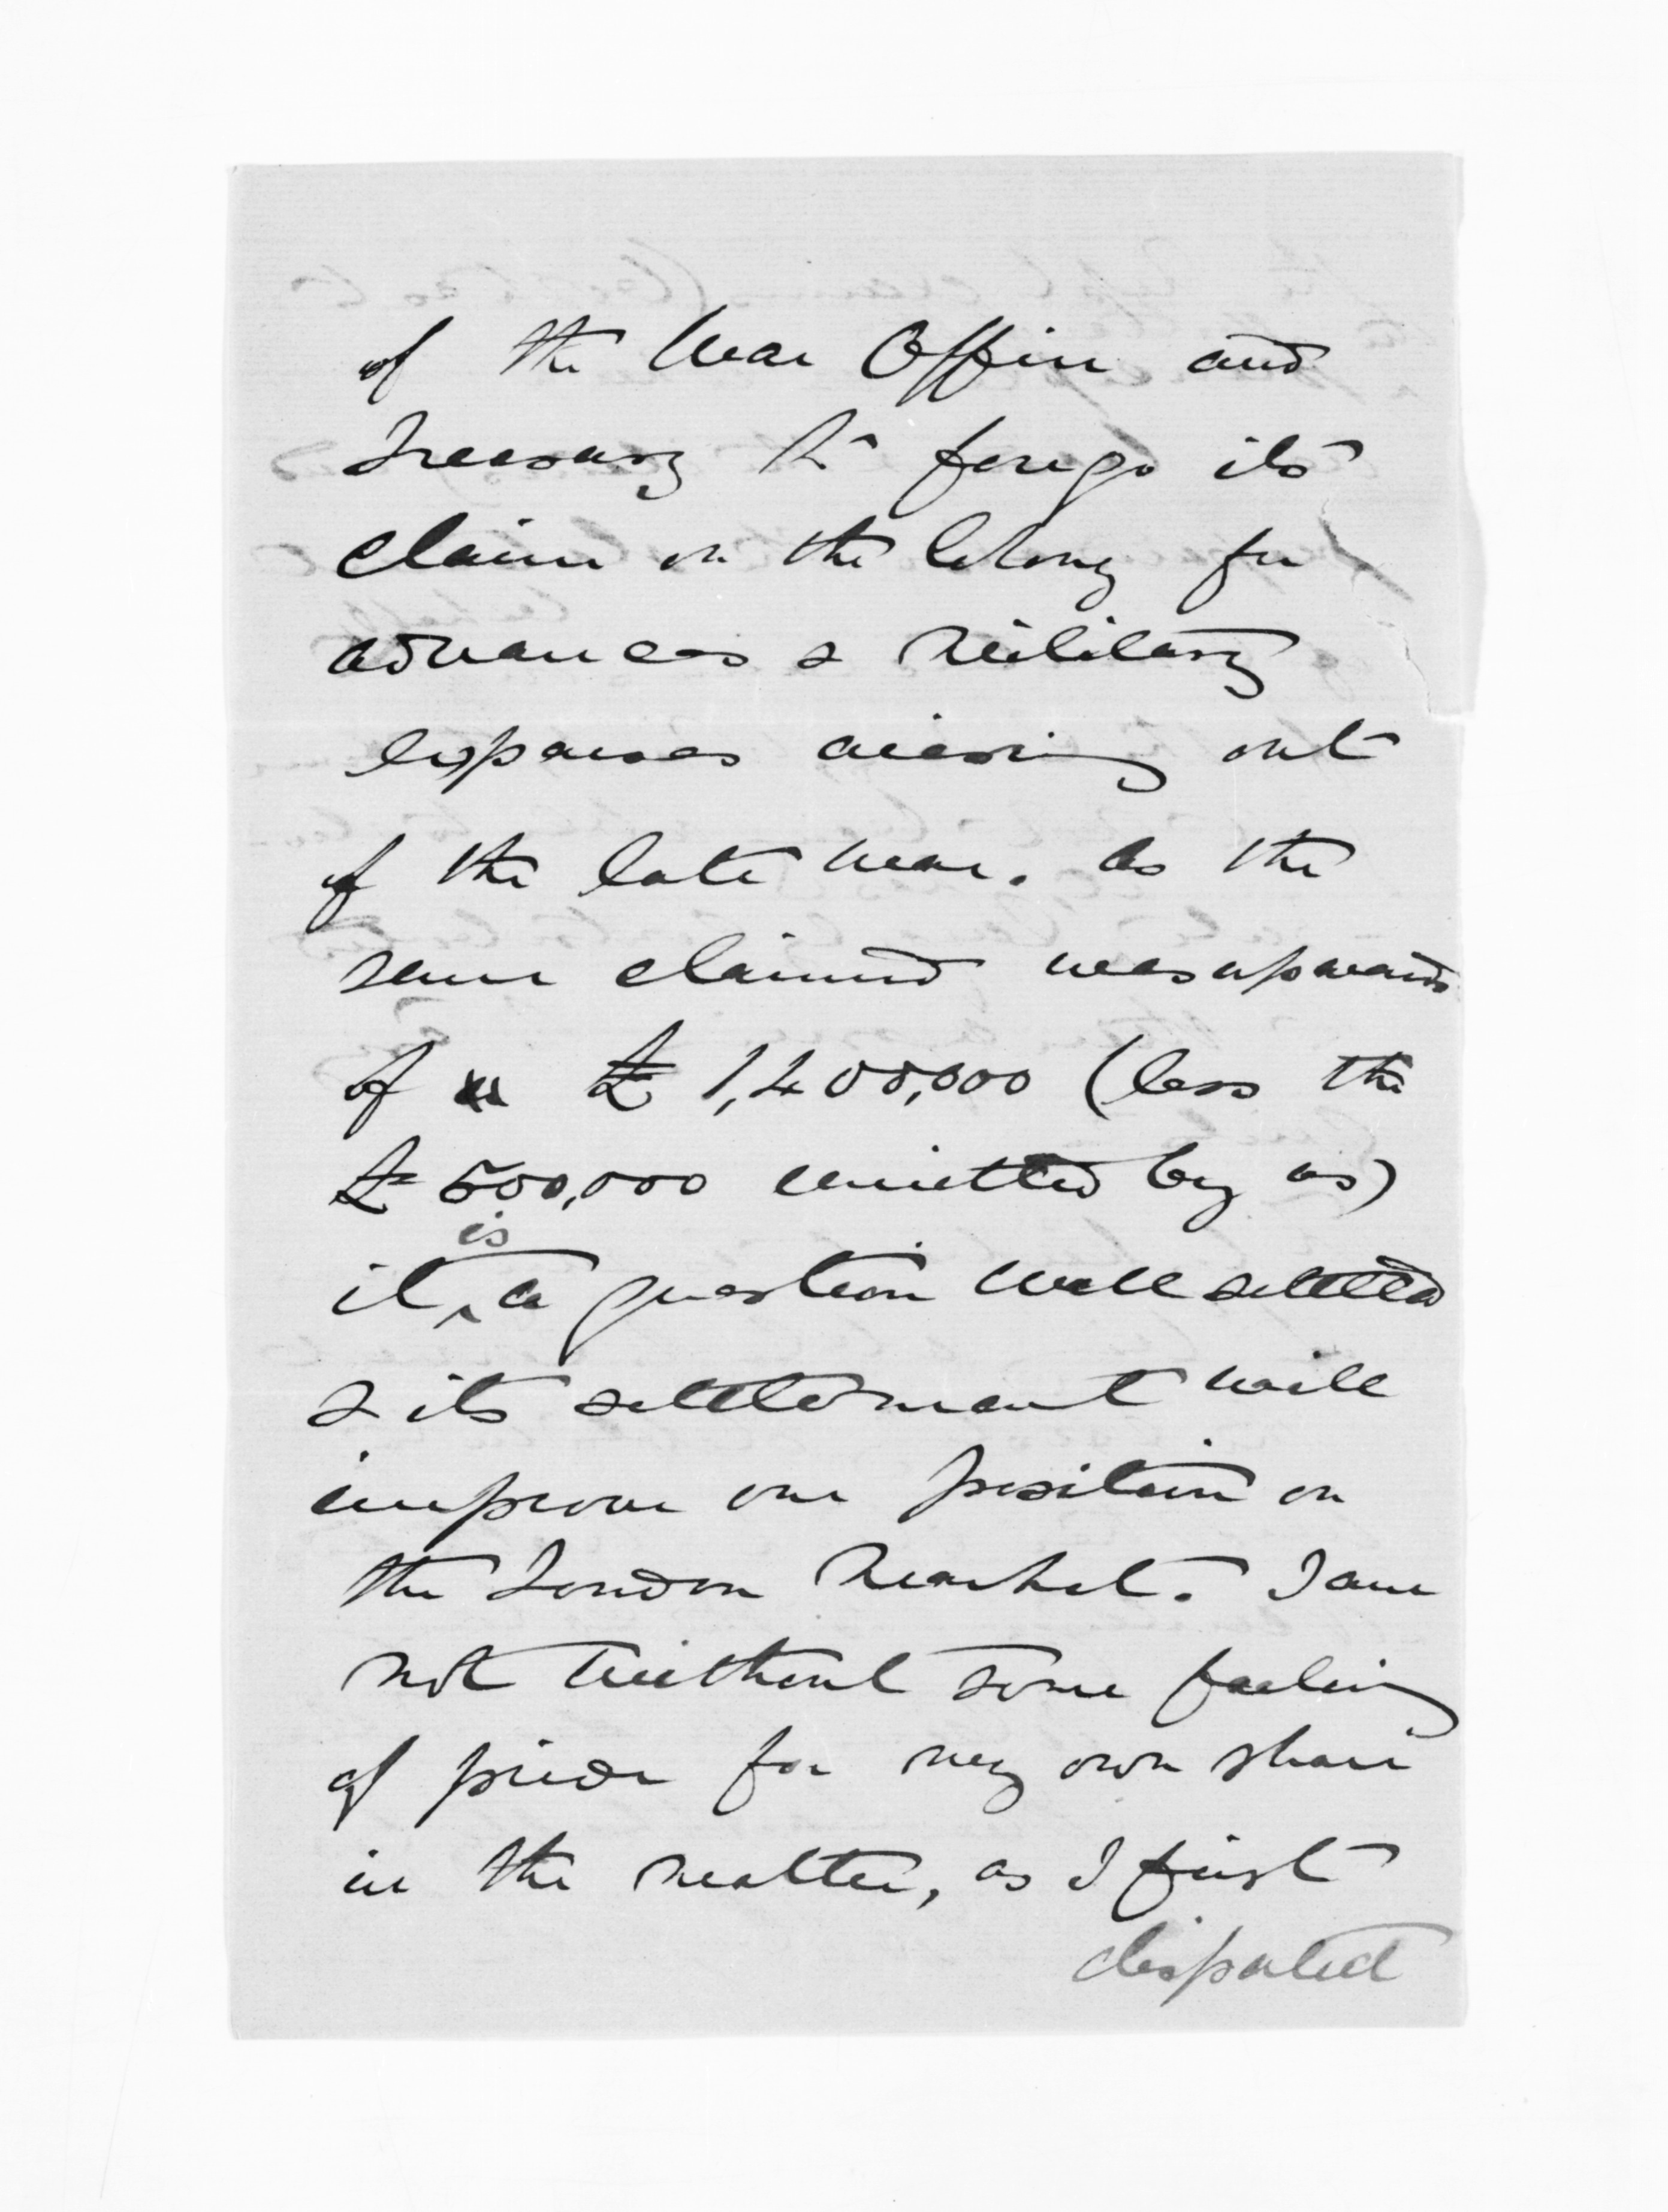 of the War Office and
Treasury to forego its
claim on the Colony for
advances & Military
expenses arising out
of the late war. As the
sum claimed was upwards
of £1,400,000 (less the
£500,000 remitted by us)
it is a question well settled
& its settlement will
improve our position on
the London Market. I am
not without some feeling
of pride for my own share
in the matter, as I first
disputed